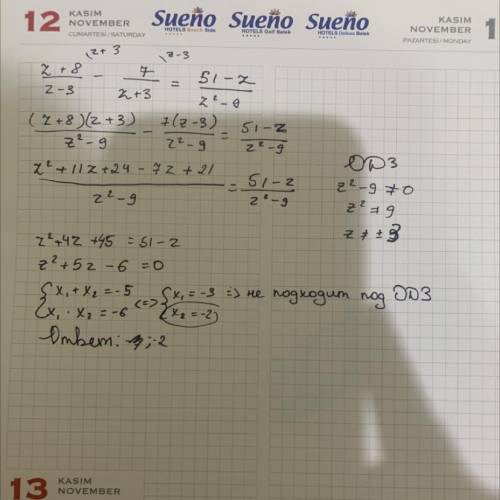 12 KASIM NOVEMBER CUMARTESİ / SATURDAY
Sueño HOTELS Beach Side
Sueño HOTELS Golf Belek
Sueño HOTELS Deluxe Belek
KASIM NOVEMBER PAZARTESİ / MONDAY 1
\z+3 \z-3
z+8/z-3 - 7/z+3 = 51-z/z²-9
(z+8)(z+3)/z²-9 - 7(z-3)/z²-9 = 51-z/z²-9
z²+11z+24-7z+21/z²-9 = 51-z/z²-9
ОДЗ
z²-9≠0
z²≠9
z≠±3
z²+4z+45=51-z
z²+5z-6=0
{x₁+x₂=-5 <=> {x₁=-3 => не подходит под ОДЗ
{x₁·x₂=-6 {x₂=-2
Ответ: -2
13 KASIM NOVEMBER